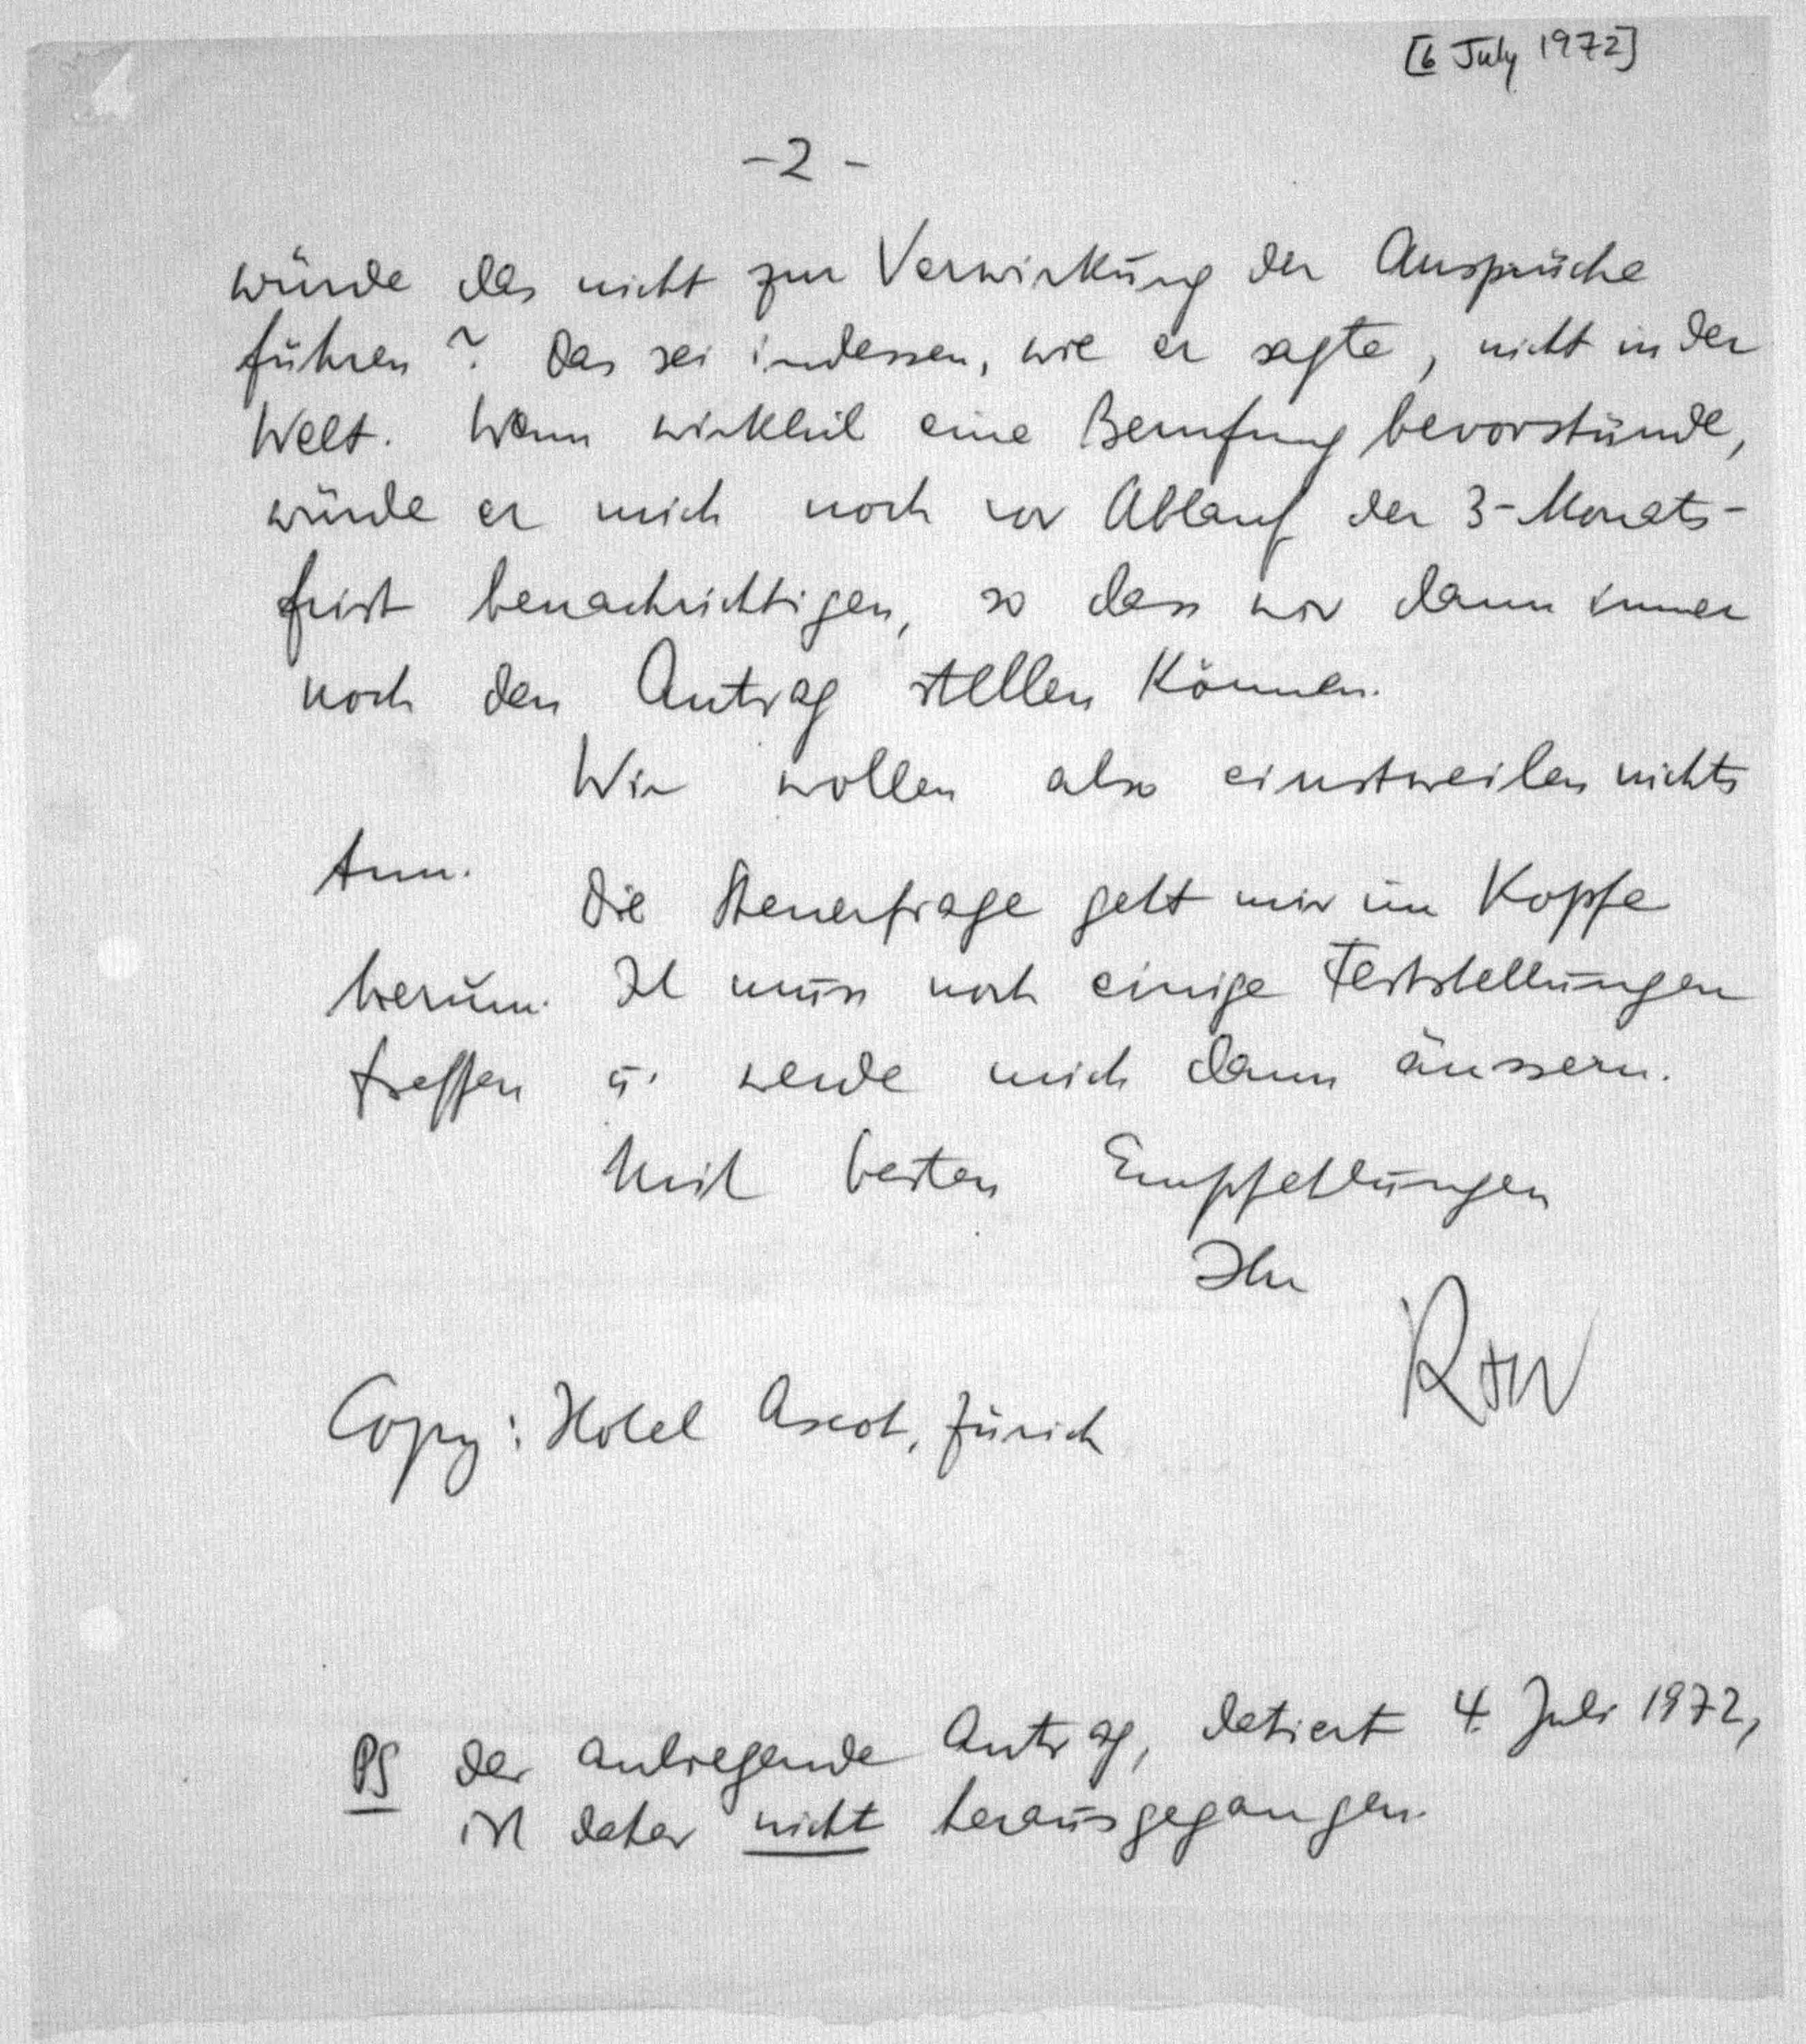 [6 July 1972]
- 2 -
würde das nicht zur Verwirkung der Ansprüche
führen? Das sei indessen, wie er sagte, nicht in der
Welt. Wenn wirklich eine Berufung bevorstünde,
würde er mich noch vor Ablauf der 3-Monats-
frist benachrichtigen, so dass wir dann immer
noch den Antrag stellen können.
Wir wollen also einstweilen nichts
tun.
Die Steuerfrage geht mir im Kopfe
herum. Ich muss noch einige Feststellungen
treffen u. werde mich dann äussern.
Mit besten Empfehlungen
Ihr
Copy: Hotel Ascot, Zürich
PS der anliegende Antrag, datiert 4. Juli 1972,
ist daher nicht herausgegangen.